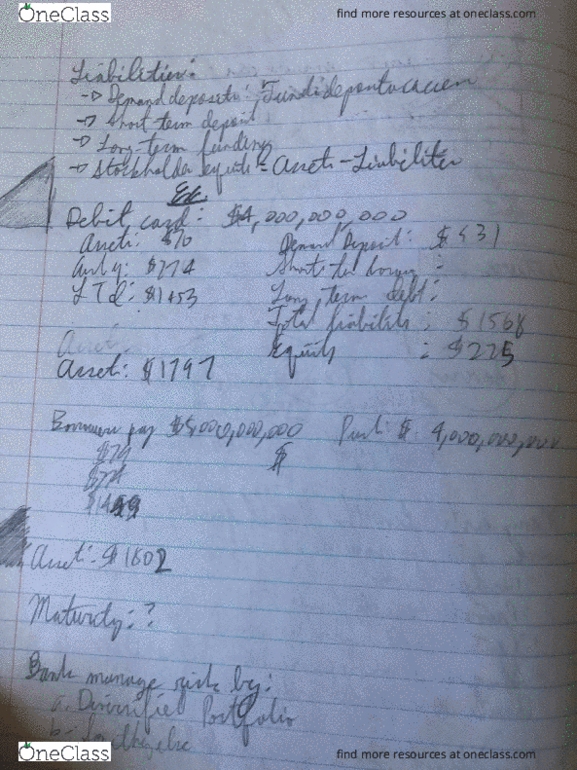 OneClass
find more resources at oneclass.com
Liabilities:
→ Demand deposits:
→ Short term deposit
→ Long-term funding
→ Stockholder equity = Asset - Liabilities
Debit card: $4,000,000,000
Asset: $70 Demand Deposit: $531
$274 Short
LTD: $1453 Long term debt:
Total liabilities: $1568
Equity : $225
Asset: $1797
Borrower pay $5,000,000,000 $ 4,000,000,000
$79 $
$274
Asset: $1802
Maturity: ?
Bank manage risk by:
a. Diversified Portfolio
b.
OneClass
find more resources at oneclass.com